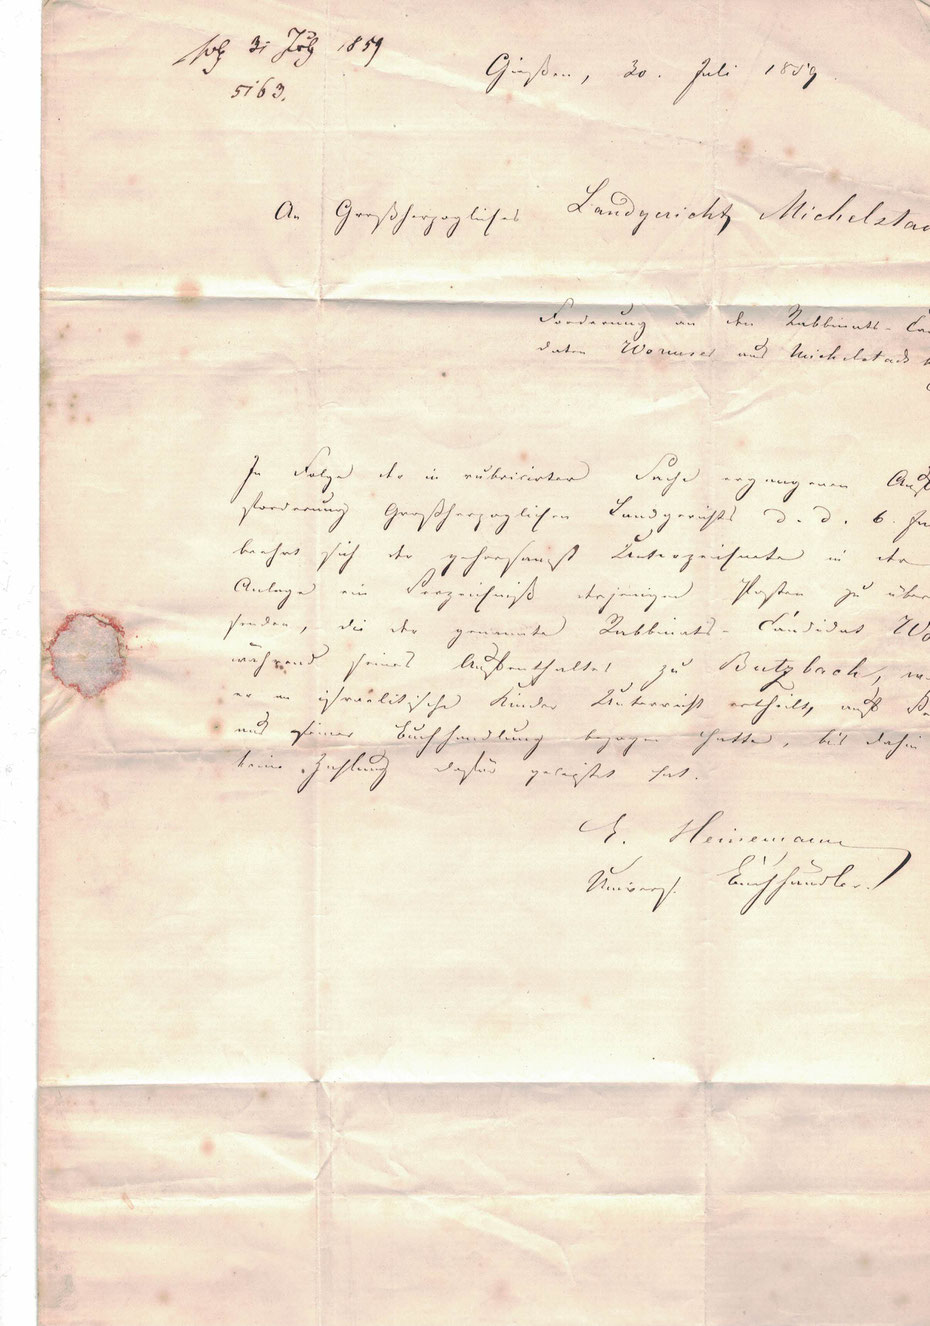 31 July 1859
5163.
Gießen, 30. Juli 1859.
An Großherzogliches Landgericht Michelstad
Forderung an den Rabbinats-Can
daten Wormser aus Michelstadt
In Folge der in rubricirter Sache ergangenen Auf
forderung Großherzoglichen Landgerichts d. d. 6. Ju
beehrt sich der gehorsamst Unterzeichnete in der
Anlage ein Verzeichniß derjenigen Posten zu über
senden, die der genannte Rabbinats-Candidat Wo
während seines Aufenthaltes zu Butzbach, w
er an israelitische Kinder Unterricht ertheilt, auf
aus seiner Buchhandlung bezogen hatte, bis dahin
keine Zahlung dafür geleistet hat.
E. Heinemann
Univers. Buchhändler.